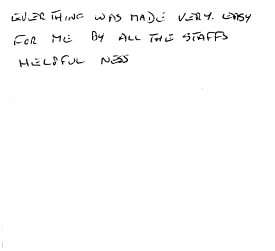 EVERTHING WAS MADE VERY. EASY
FOR ME BY ALL THE STAFFS
HELPFUL NESS